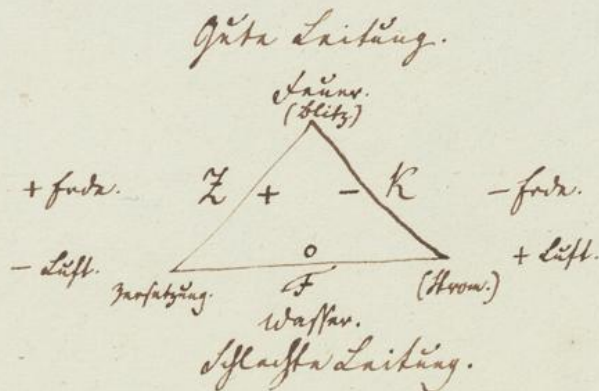 Gute Leitung.
Feuer.
(Blitz.)
+ Erde. Z + - K - Erde.
- Luft. o + Luft.
Zersetzung. F (Strom.)
Wasser.
Schlechte Leitung.